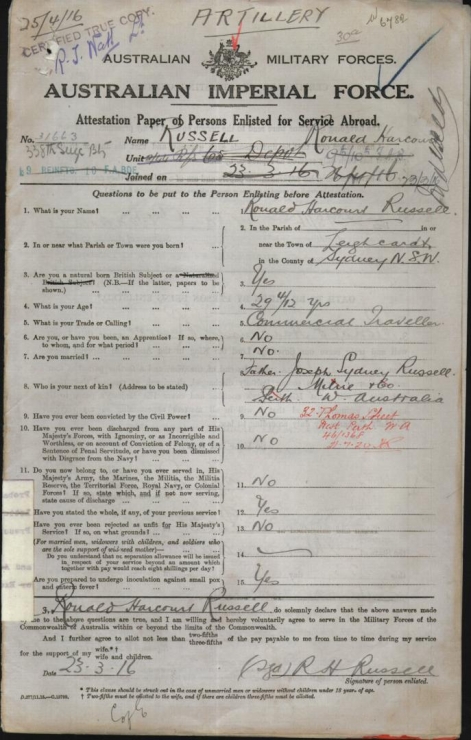 25/4/16
ARTILLERY
CERTIFIED TRUE COPY.
AUSTRALIAN MILITARY FORCES.
AUSTRALIAN IMPERIAL FORCE.
Attestation Paper of Persons Enlisted for Service Abroad.
No. Name RUSSELL Ronald Harcourt
Unit Depot
Joined on 23-3-16
Questions to be put to the Person Enlisting before Attestation.
1. What is your Name? ... ... ... 1. Ronald Harcourt Russell
2. In or near what Parish or Town were you born? ... 2. In the Parish of in or
near the Town of
in the County of Sydney N.S.W.
3. Are you a natural born British Subject or a Naturalized
British Subject? (N.B.—If the latter, papers to be
shown.) 3. Yes
4. What is your Age? ... ... ... 4. 29 4/12 yrs
5. What is your Trade or Calling? ... ... 5. Commercial Traveller
6. Are you, or have you been, an Apprentice? If so, where,
to whom, and for what period? 6. No
7. Are you married? ... ... ... 7. No.
8. Who is your next of kin? (Address to be stated) 8. Father Joseph Sydney Russell
Perth W. Australia
9. Have you ever been convicted by the Civil Power? 9. No
32 Thomas Street
West Perth W A
10. Have you ever been discharged from any part of His
Majesty's Forces, with Ignominy, or as Incorrigible and
Worthless, or on account of Conviction of Felony, or of a
Sentence of Penal Servitude, or have you been dismissed
with Disgrace from the Navy? 10. No
11. Do you now belong to, or have you ever served in, His
Majesty's Army, the Marines, the Militia, the Militia
Reserve, the Territorial Force, Royal Navy, or Colonial
Forces? If so, state which, and if not now serving,
state cause of discharge 11. No
Have you stated the whole, if any, of your previous service? 12. Yes
Have you ever been rejected as unfit for His Majesty's
Service? If so, on what grounds? 13. No
(For married men, widowers with children, and soldiers who
are the sole support of widowed mother)—
Do you understand that no separation allowance will be issued
in respect of your service beyond an amount which
together with pay would reach eight shillings per day? 14.
Are you prepared to undergo inoculation against small pox
and enteric fever? 15. Yes
I, Ronald Harcourt Russell do solemnly declare that the above answers made
by me to the above questions are true, and I am willing and hereby voluntarily agree to serve in the Military Forces of the
Commonwealth of Australia within or beyond the limits of the Commonwealth.
And I further agree to allot not less than two-fifths three-fifths of the pay payable to me from time to time during my service
for the support of my wife.*† wife and children.
Date 23-3-16 (Sgd) R H Russell
Signature of person enlisted.
* This clause should be struck out in the case of unmarried men or widowers without children under 18 years of age.
† Two-fifths must be allotted to the wife, and if there are children three-fifths must be allotted.